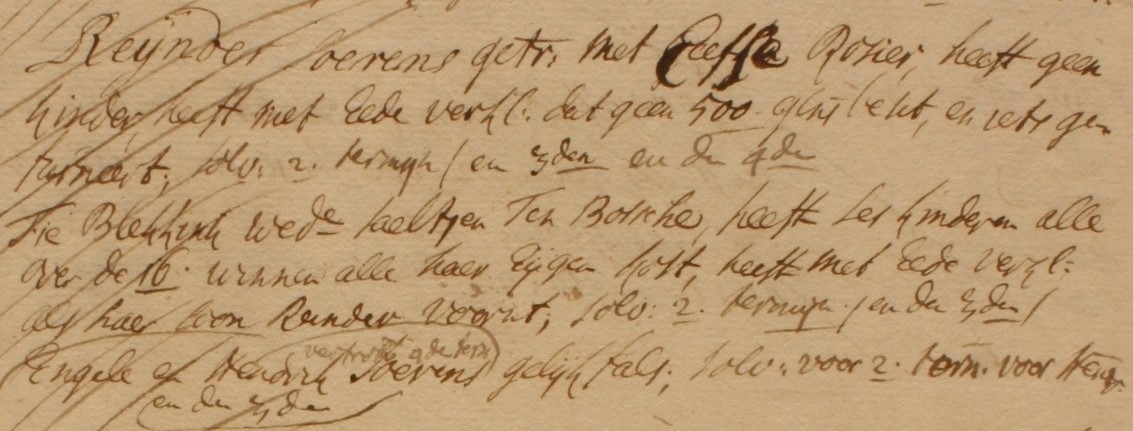 Reijnder Soerens getr. met Eeffse Rosier, heeft geen
kinder heeft met Eede verkl: dat geen 500 gins besit, en iets gen
turneert, solv: 2. termijn / en 3den en de 4de
Fie Blekkink wede saeltjen Ten Bossche, heeft ses kinderen alle
over de 16. winnen alle haer Eijgen kost, heeft met Eede verkl:
als haer soon Reinder voornt; solv: 2. termijn / en den 3den /
Engele en Hendrik Soerens gelijk fals, solv: voor 2. term. voor Hend.
4de term
en den 3den